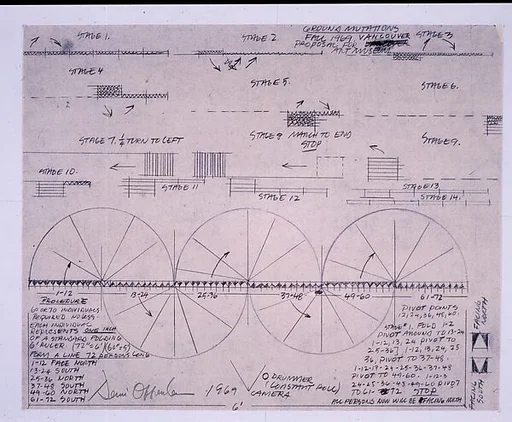 GROUND MUTATIONS
FALL 1969 VANCOUVER
PROPOSAL FOR
ART MUSEUM
STAGE 1.
STAGE 2
STAGE 3
STAGE 4
STAGE 5.
STAGE 6.
STAGE 7. ¼ TURN TO LEFT
STAGE 8 MARCH TO END
STOP
STAGE 9.
STAGE 10.
STAGE 11
STAGE 12
STAGE 13
STAGE 14.
1-12
13-24
25-36
37-48
49-60
61-72
PROCEDURE
60 OR 70 INDIVIDUALS
REQUIRED NO LESS.
EACH INDIVIDUAL
REPRESENTS ONE INCH
OF A STANDARD FOLDING
6' RULER. [72"=6']
FORM A LINE 72 PERSONS LONG
1-12 FACE NORTH
13-24 SOUTH
25-36 NORTH
37-48 SOUTH
49-60 NORTH
61-72 SOUTH
Dennis Oppenheim 1969
DRUMMER
(CONSTANT ROLL)
CAMERA
6'
PIVOT POINTS
12, 24, 36, 48, 60.
STAGE 1, FOLD 1-2
PIVOT AROUND TO 13-24
1-12, 13, 24 PIVOT TO
25-36] 1-12, 13, 24, 25
36 PIVOT TO 37-48.
1-12-13-24-25-36-37-48
PIVOT TO 49-60. 1-12-13
24-25-36-48-49-60 PIVOT
TO 61-72 STOP
ALL PERSONS NOW WILL BE FACING NORTH
FACING NORTH
FACING SOUTH